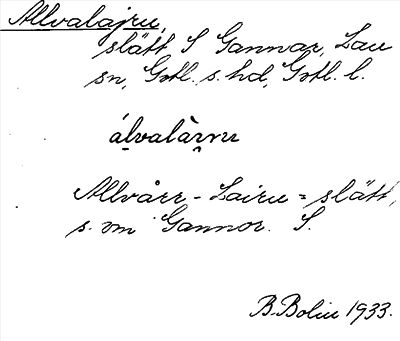 Allvalajru,
slätt S Gannor, Lau
sn, Gotl. s. hd, Gotl. l.
álvalàrnr
Allvårr - Lairu = slätt,
s. om Gannor. S.
B. Bolin 1933.